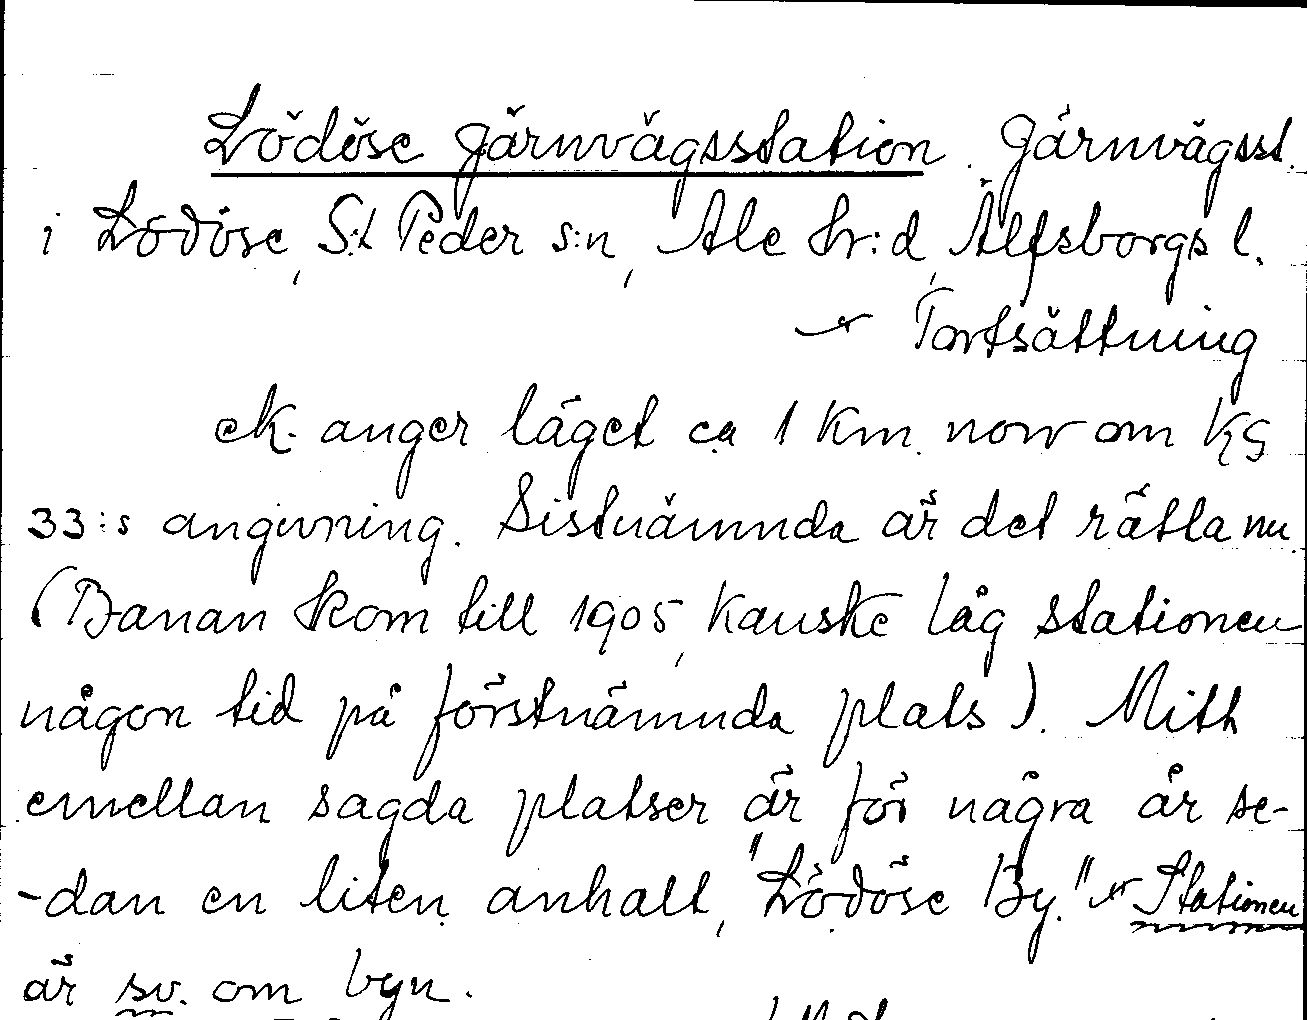 Lödöse järnvägsstation. Järnvägsst.
i Lödöse, S:t Peder s:n, Ale hr:d, Älfsborgs l.
Fortsättning
ek. anger läget ca 1 km. norr om KS
33:s angivning. Sistnämnda är det rätta nu.
(Banan kom till 1905, kanske låg stationen
någon tid på förstnämnda plats). Mitt
emellan sagda platser är för några år se-
-dan en liten anhalt, "Lödöse By." Stationen
är sv. om byn.